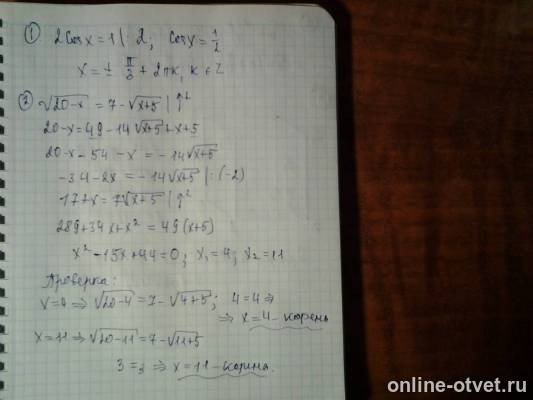 ① 2cosx = 1 |: 2; cosx = 1/2
x = ± π/3 + 2πk, k ∈ Z
② √20-x = 7 - √x+5 |↑²
20-x = 49 - 14√x+5 + x+5
20-x - 54 - x = -14√x+5
-34-2x = -14√x+5 | : (-2)
17+x = 7√x+5 |↑²
289+34x+x² = 49(x+5)
x² - 15x + 44 = 0; x₁ = 4; x₂ = 11
Проверка:
x=4 ⇒ √20-4 = 7 - √4+5; 4=4 ⇒
⇒ x=4 - корень
x=11 ⇒ √20-11 = 7 - √11+5
3 = 3 ⇒ x = 11 - корень.
online-otvet.ru